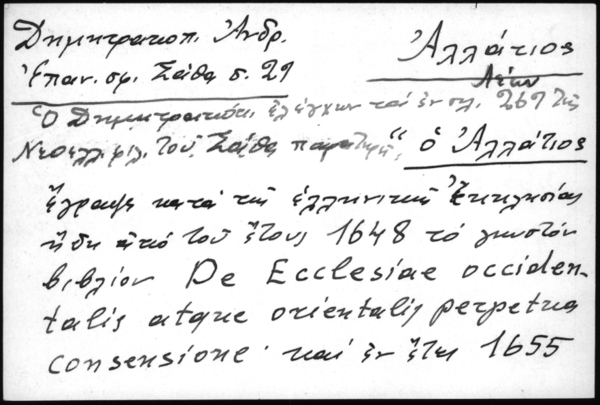 Δημητρακοπ. Ἀνδρ.
Ἐπαν. σφ. Σάθα σ. 29
Ἀλλάτιος
Λέων
Ὁ Δημητρακόπ. ἐλέγχων τά ἐν σελ. 269 τῆς
Νεοελλ. φιλ. τοῦ Σάθα παρατηρεῖ, "ὁ Ἀλλάτιος
ἔγραψε κατά τῆς ἑλληνικῆς Ἐκκλησίας
ἤδη ἀπό τοῦ ἔτους 1648 τό γνωστόν
βιβλίον De Ecclesiae occiden-
talis atque orientalis perpetua
consensione· καί ἐν ἔτει 1655